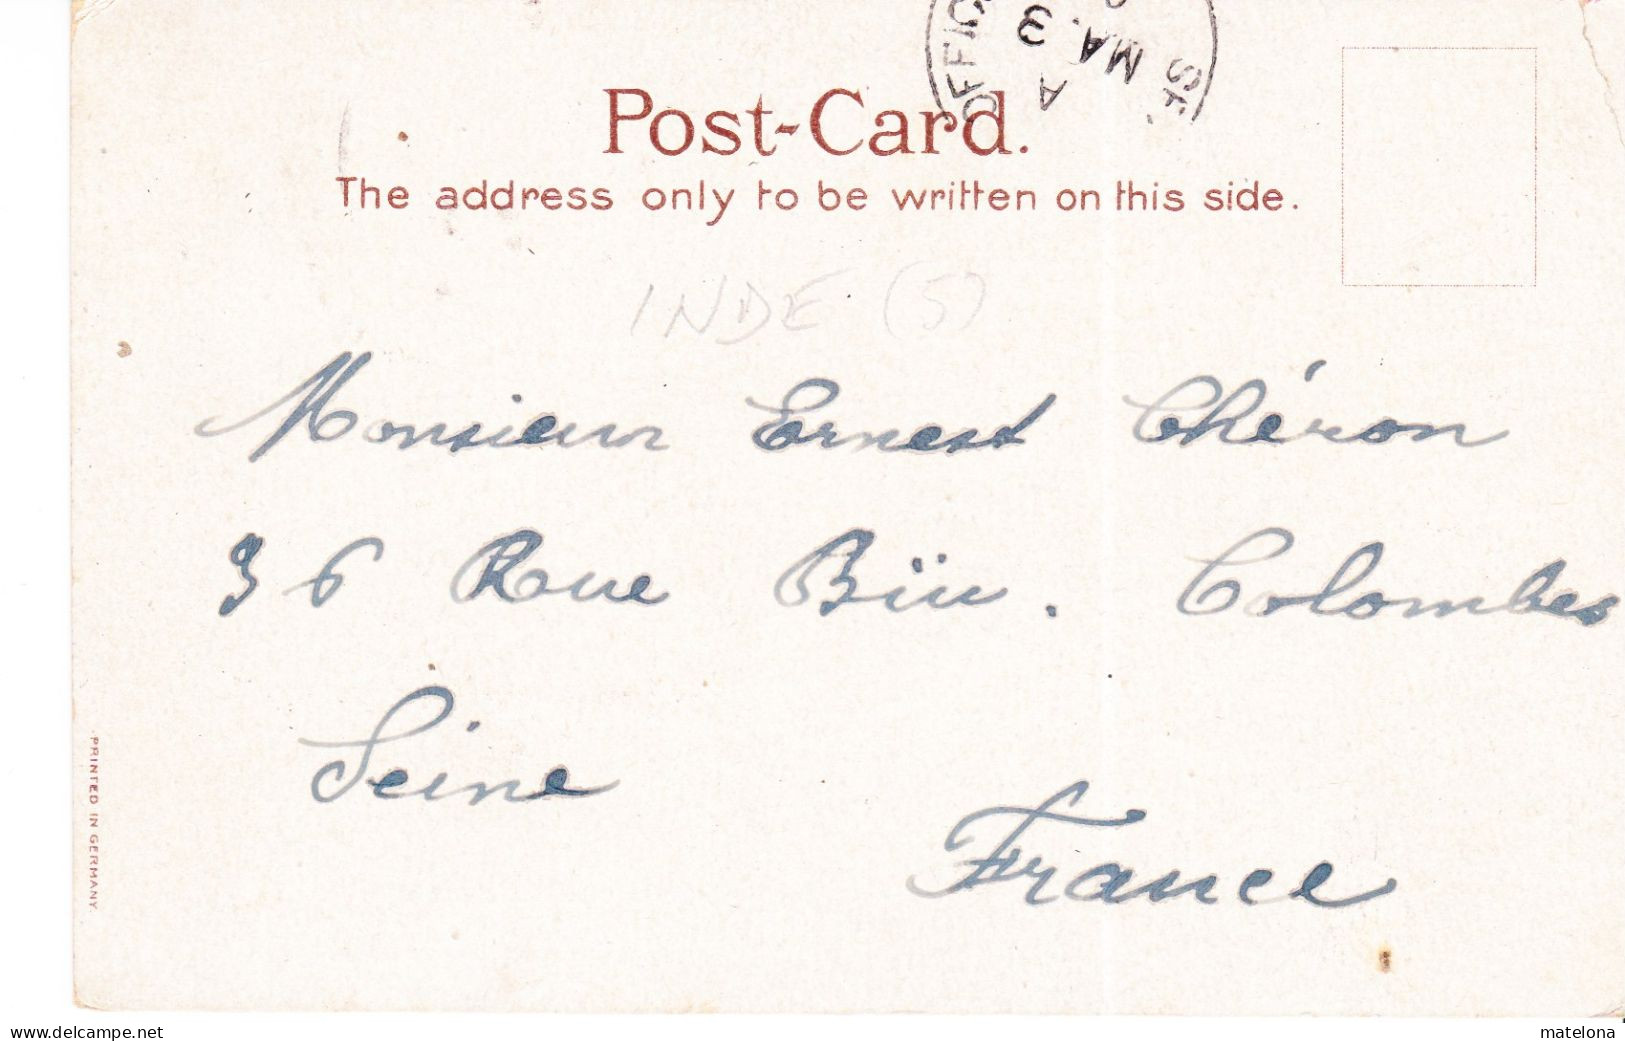 OFFIC
A
MA. 3
Post-Card.
The address only to be written on this side.
INDE (5)
Monsieur Ernest Chéron
36 Rue Büu. Colombes
Seine
France
PRINTED IN GERMANY.
www.delcampe.net
matelona